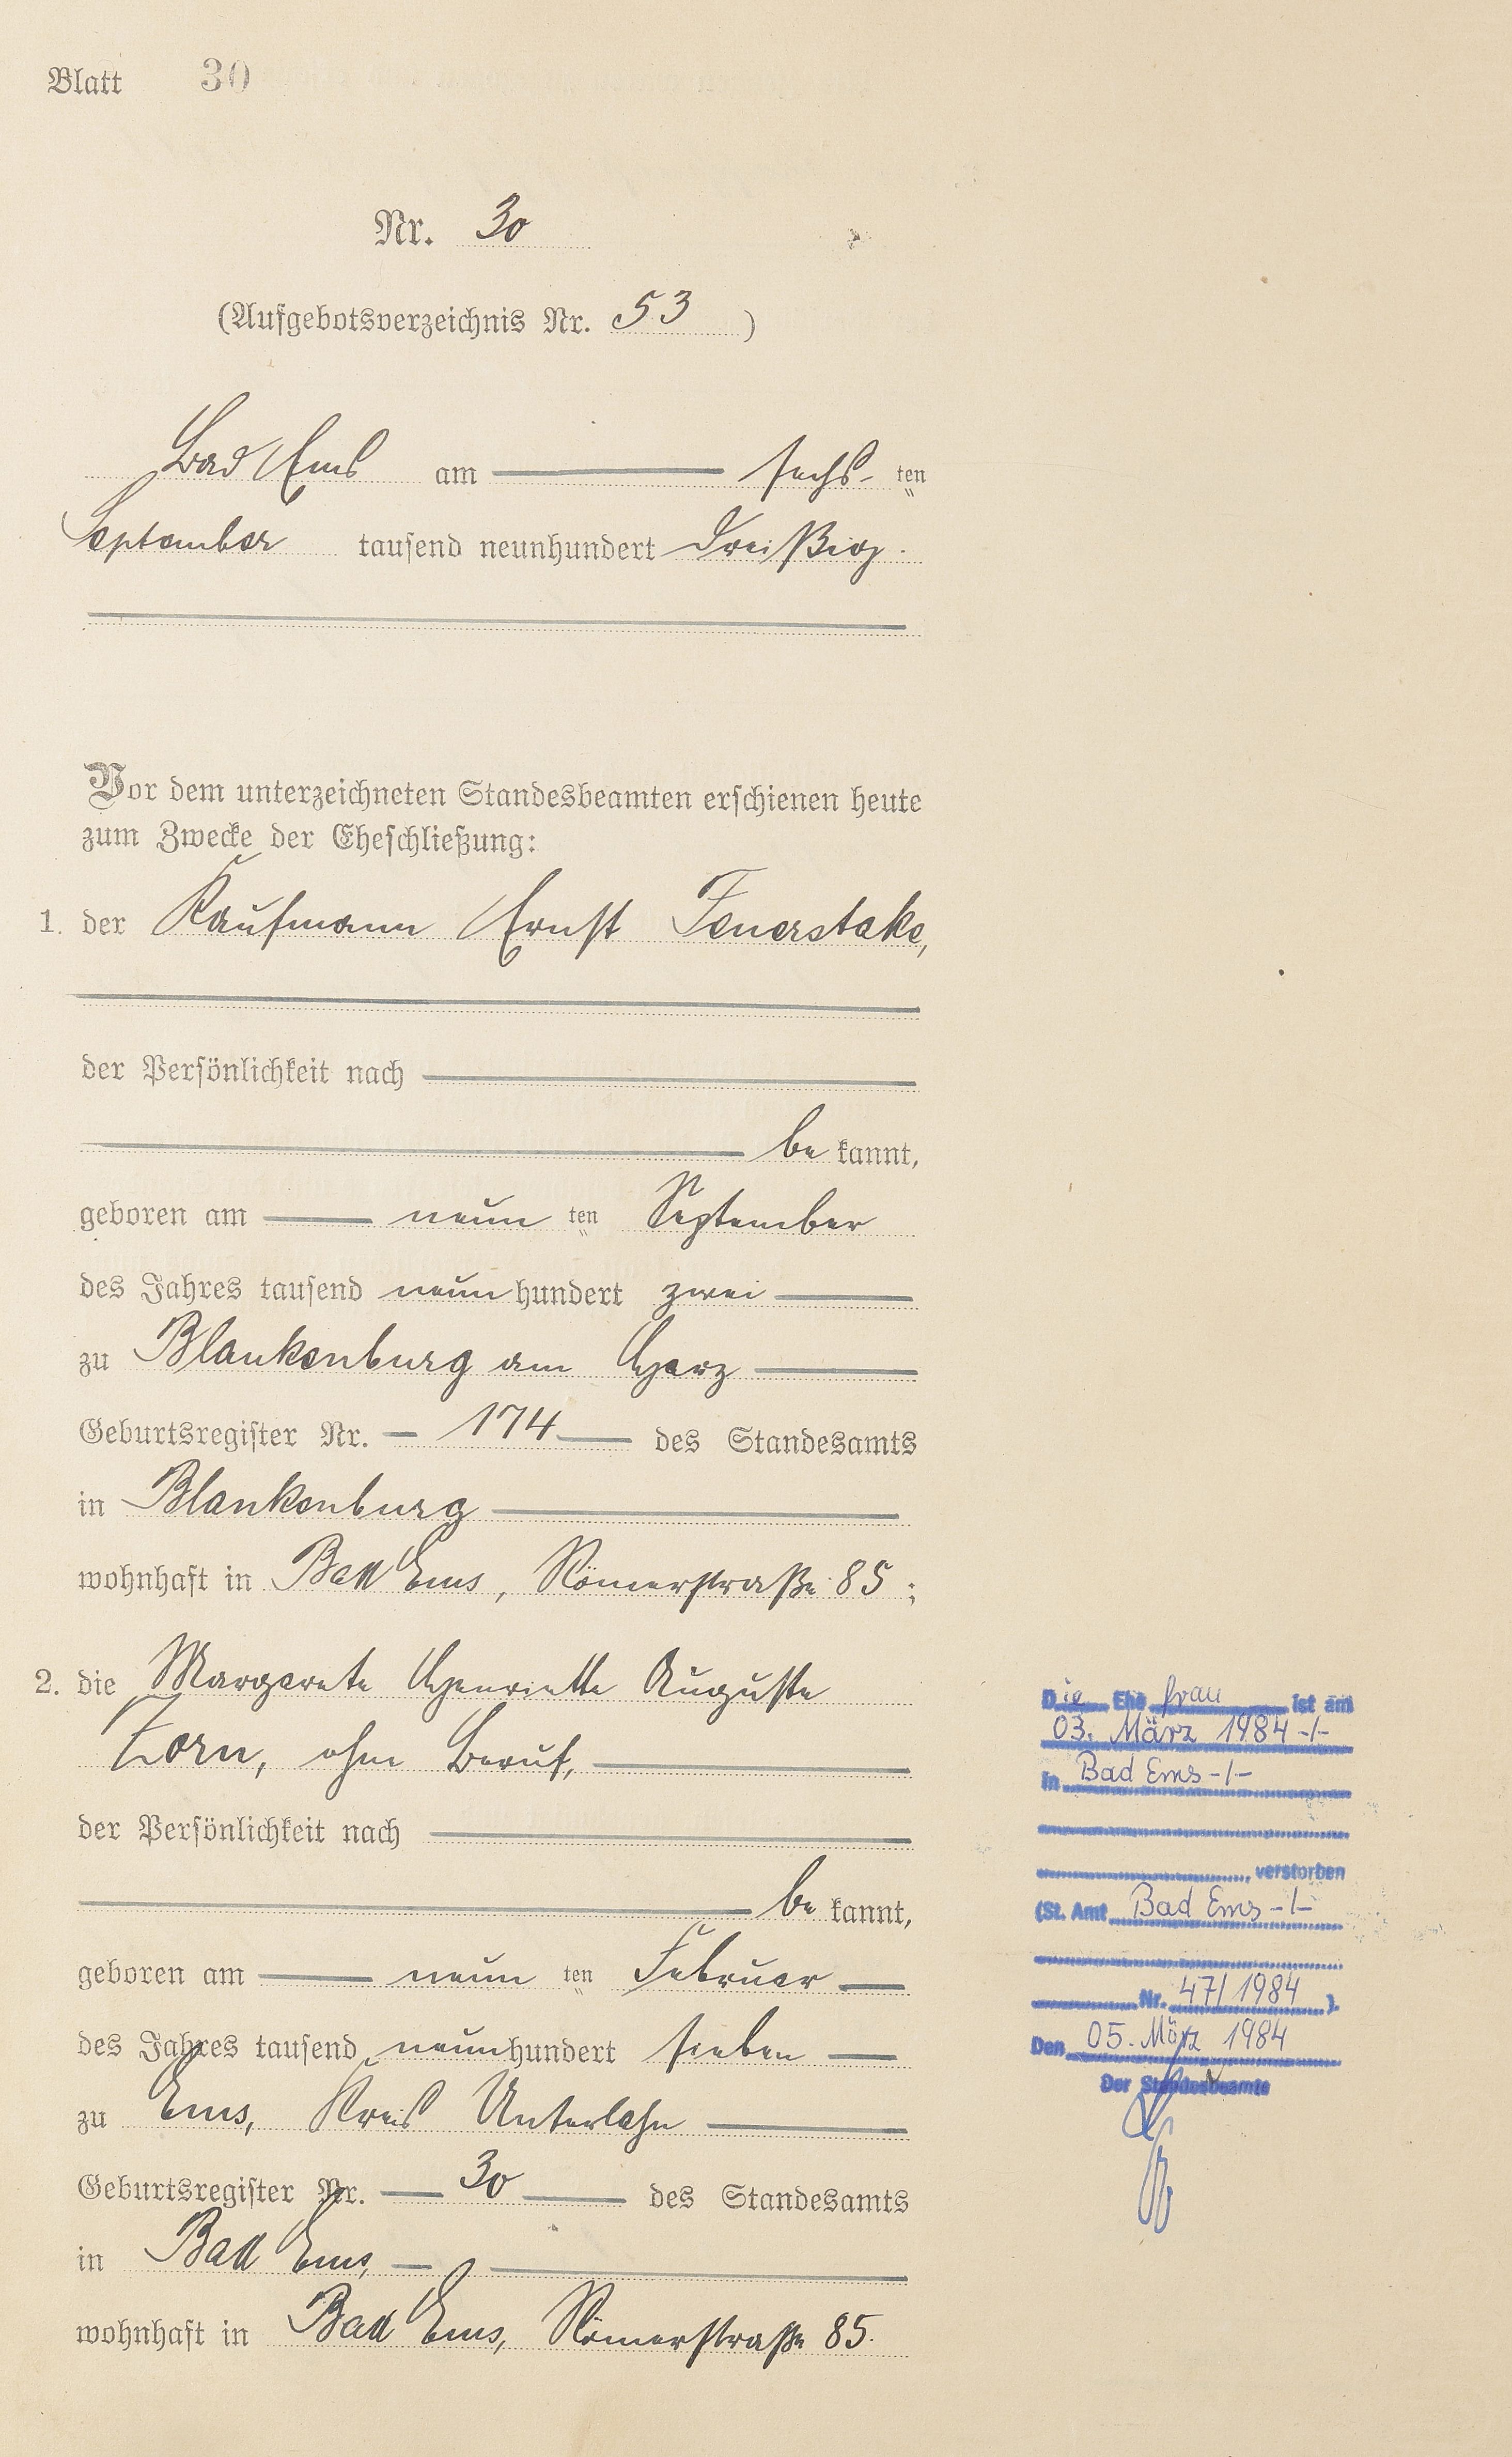 Blatt 30
Nr. 30
(Aufgebotsverzeichnis Nr. 53)
Bad Ems am sechs-ten
September tausend neunhundert dreißig.
Vor dem unterzeichneten Standesbeamten erschienen heute
zum Zwecke der Eheschließung:
1. der Kaufmann Ernst Feuerstake,
der Persönlichkeit nach
be kannt,
geboren am neun ten September
des Jahres tausend neun hundert zwei
zu Blankenburg am Harz
Geburtsregister Nr. 174 des Standesamts
in Blankenburg
wohnhaft in Bad Ems, Römerstraße 85;
2. die Margarete Henriette Auguste
Zorn, ohne Beruf,
der Persönlichkeit nach
be kannt,
geboren am neun ten Februar
des Jahres tausend neun hundert sieben
zu Ems, Kreis Unterlahn
Geburtsregister Nr. 30 des Standesamts
in Bad Ems,
wohnhaft in Bad Ems, Römerstraße 85.
Die Ehe frau ist am
03. März 1984 -/-
in Bad Ems -/-
, verstorben
(St. Amt Bad Ems -/-
Nr. 47/1984 ).
Den 05. März 1984
Der Standesbeamte